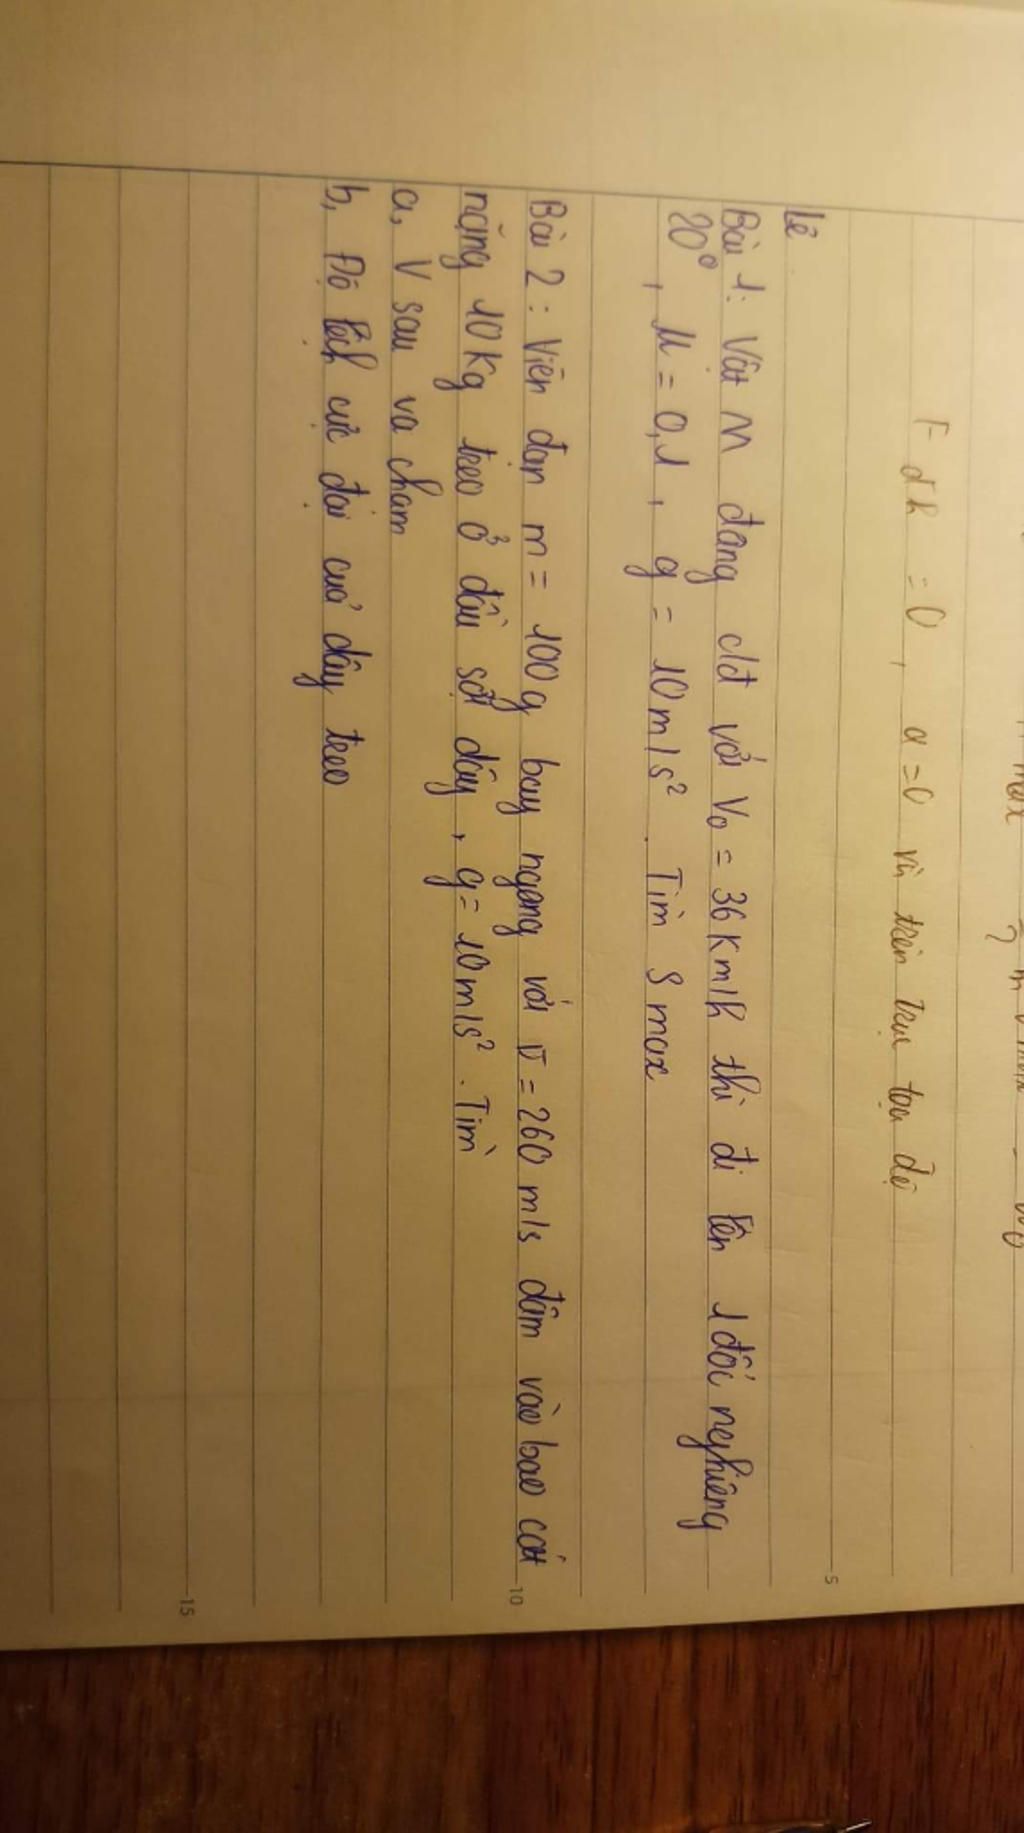 F đh = 0, a = 0 và trên trục tọa độ
5
Lẻ
Bài 1: Vật M đang cđ với V₀ = 36 Km/h thì đi lên 1 đồi nghiêng
20°, μ = 0,1, g = 10m/s². Tìm S max
Bài 2: Viên đạn m = 100g bay ngang với v = 260 m/s đâm vào bao cát
10
nặng 10Kg treo ở đầu sợi dây, g = 10m/s². Tìm
a, V sau va chạm
b, Độ lệch cực đại của dây treo
15